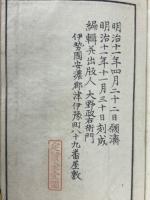 明治十一年四月二十二日御届
明治十一年十一月三十日刻成
編輯兼出版人 大野政右衛門
伊勢國安濃郡津伊豫町八十九番屋敷